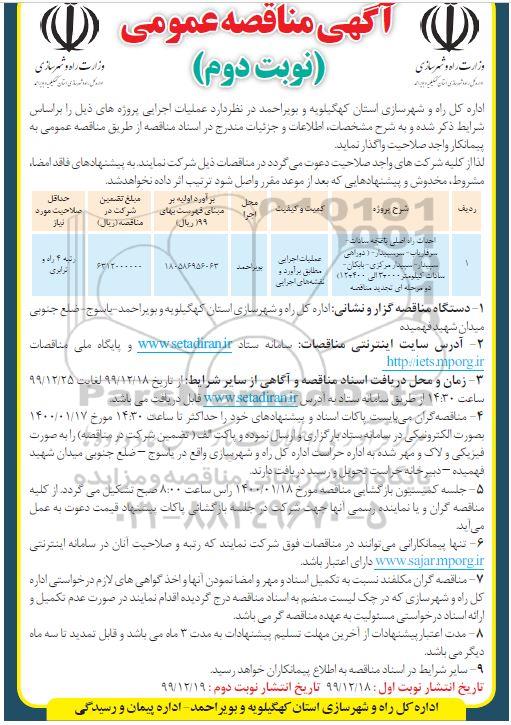 آگهی مناقصه عمومی
(نوبت دوم)
وزارت راه و شهرسازی
وزارت راه و شهرسازی
اداره کل راه و شهرسازی استان کهگیلویه و بویراحمد در نظر دارد عملیات اجرایی پروژه های ذیل را براساس
شرایط ذکر شده و به شرح مشخصات، اطلاعات و جزئیات مندرج در اسناد مناقصه از طریق مناقصه عمومی به
پیمانکار واجد صلاحیت واگذار نماید.
لذا از کلیه شرکت های واجد صلاحیت دعوت می گردد در مناقصات ذیل شرکت نمایند. به پیشنهادهای فاقد امضا،
مشروط، مخدوش و پیشنهادهایی که بعد از موعد مقرر واصل شود ترتیب اثر داده نخواهد شد.
ردیف
شرح پروژه
کمیت و کیفیت
محل
اجرا
برآورد اولیه بر
مبنای فهرست بهای
۹۹( ریال)
مبلغ تضمین
شرکت در
مناقصه (ریال)
حداقل
صلاحیت مورد
نیاز
۱
احداث راه اصلی پاتخته سادات -
سرفاریاب - سرسپیدار - ( دوراهی
سپیدار - سپیدار مرکزی - بابکان -
سادات کیلومتر
دو مرحله ای تجدید مناقصه
عملیات اجرایی
مطابق برآورد و
نقشه های اجرایی
بویراحمد
۱۸۰۵۸۶۹۵۶۰۶۳
۶۳۱۲۰۰۰۰۰۰
رتبه ۴ راه و
ترابری
۱- دستگاه مناقصه گزار و نشانی: اداره کل راه و شهرسازی استان کهگیلویه و بویراحمد- یاسوج- ضلع جنوبی
میدان شهید فهمیده
۲- آدرس سایت اینترنتی مناقصات: سامانه ستاد www.setadiran.ir و پایگاه ملی مناقصات
http://iets.mporg.ir
۳- زمان و محل دریافت اسناد مناقصه و آگاهی از سایر شرایط: از تاریخ ۹۹/۱۲/۱۸ لغایت ۹۹/۱۲/۲۵
ساعت ۱۴:۳۰ از طریق سامانه ستاد به آدرس www.setadiran.ir قابل دریافت می باشد.
۴- مناقصه گران می بایست پاکات اسناد و پیشنهادهای خود را حداکثر تا ساعت ۱۴:۳۰ مورخ ۱۴۰۰/۰۱/۱۷
بصورت الکترونیکی در سامانه ستاد بارگزاری و ارسال نموده و پاکت الف ( تضمین شرکت در مناقصه) را به صورت
فیزیکی و لاک و مهر شده به اداره حراست اداره کل راه و شهرسازی واقع در یاسوج - ضلع جنوبی میدان شهید
فهمیده - دبیرخانه حراست تحویل و رسید دریافت دارند.
۵- جلسه کمیسیون بازگشایی مناقصه مورخ ۱۴۰۰/۰۱/۱۸ راس ساعت ۸:۰۰ صبح تشکیل می گردد. از کلیه
مناقصه گران و یا نماینده رسمی آنها جهت شرکت در جلسه بازگشائی پاکات پیشنهاد قیمت دعوت به عمل
می آید.
۶- تنها پیمانکارانی می توانند در مناقصات فوق شرکت نمایند که رتبه و صلاحیت آنان در سامانه اینترنتی
www.sajar.mporg.ir دارای اعتبار باشد.
۷- مناقصه گران مکلفند نسبت به تکمیل اسناد و مهر و امضا نمودن آنها و اخذ گواهی های لازم درخواستی اداره
کل راه و شهرسازی که در چک لیست منضم به اسناد مناقصه درج گردیده اقدام نمایند در صورت عدم تکمیل و
ارائه اسناد درخواستی مسئولیت به عهده مناقصه گر می باشد.
۸- مدت اعتبار پیشنهادات از آخرین مهلت تسلیم پیشنهادات به مدت ۳ ماه می باشد و قابل تمدید تا سه ماه
دیگر می باشد.
۹- سایر شرایط در اسناد مناقصه به اطلاع پیمانکاران خواهد رسید.
تاریخ انتشار نوبت اول : ۹۹/۱۲/۱۸ تاریخ انتشار نوبت دوم : ۹۹/۱۲/۱۹
اداره کل راه و شهرسازی استان کهگیلویه و بویراحمد- اداره پیمان و رسیدگی